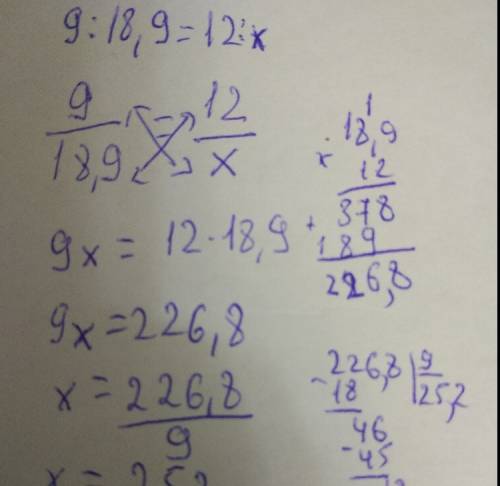 9:18,9=12:x
9/18,9 = 12/x
9x = 12·18,9
9x=226,8
x = 226,8/9
x = 25,2
1
18,9
1
x 12
378
+ 189
226,8
-226,8 | 9
18 | 25,2
46
-45